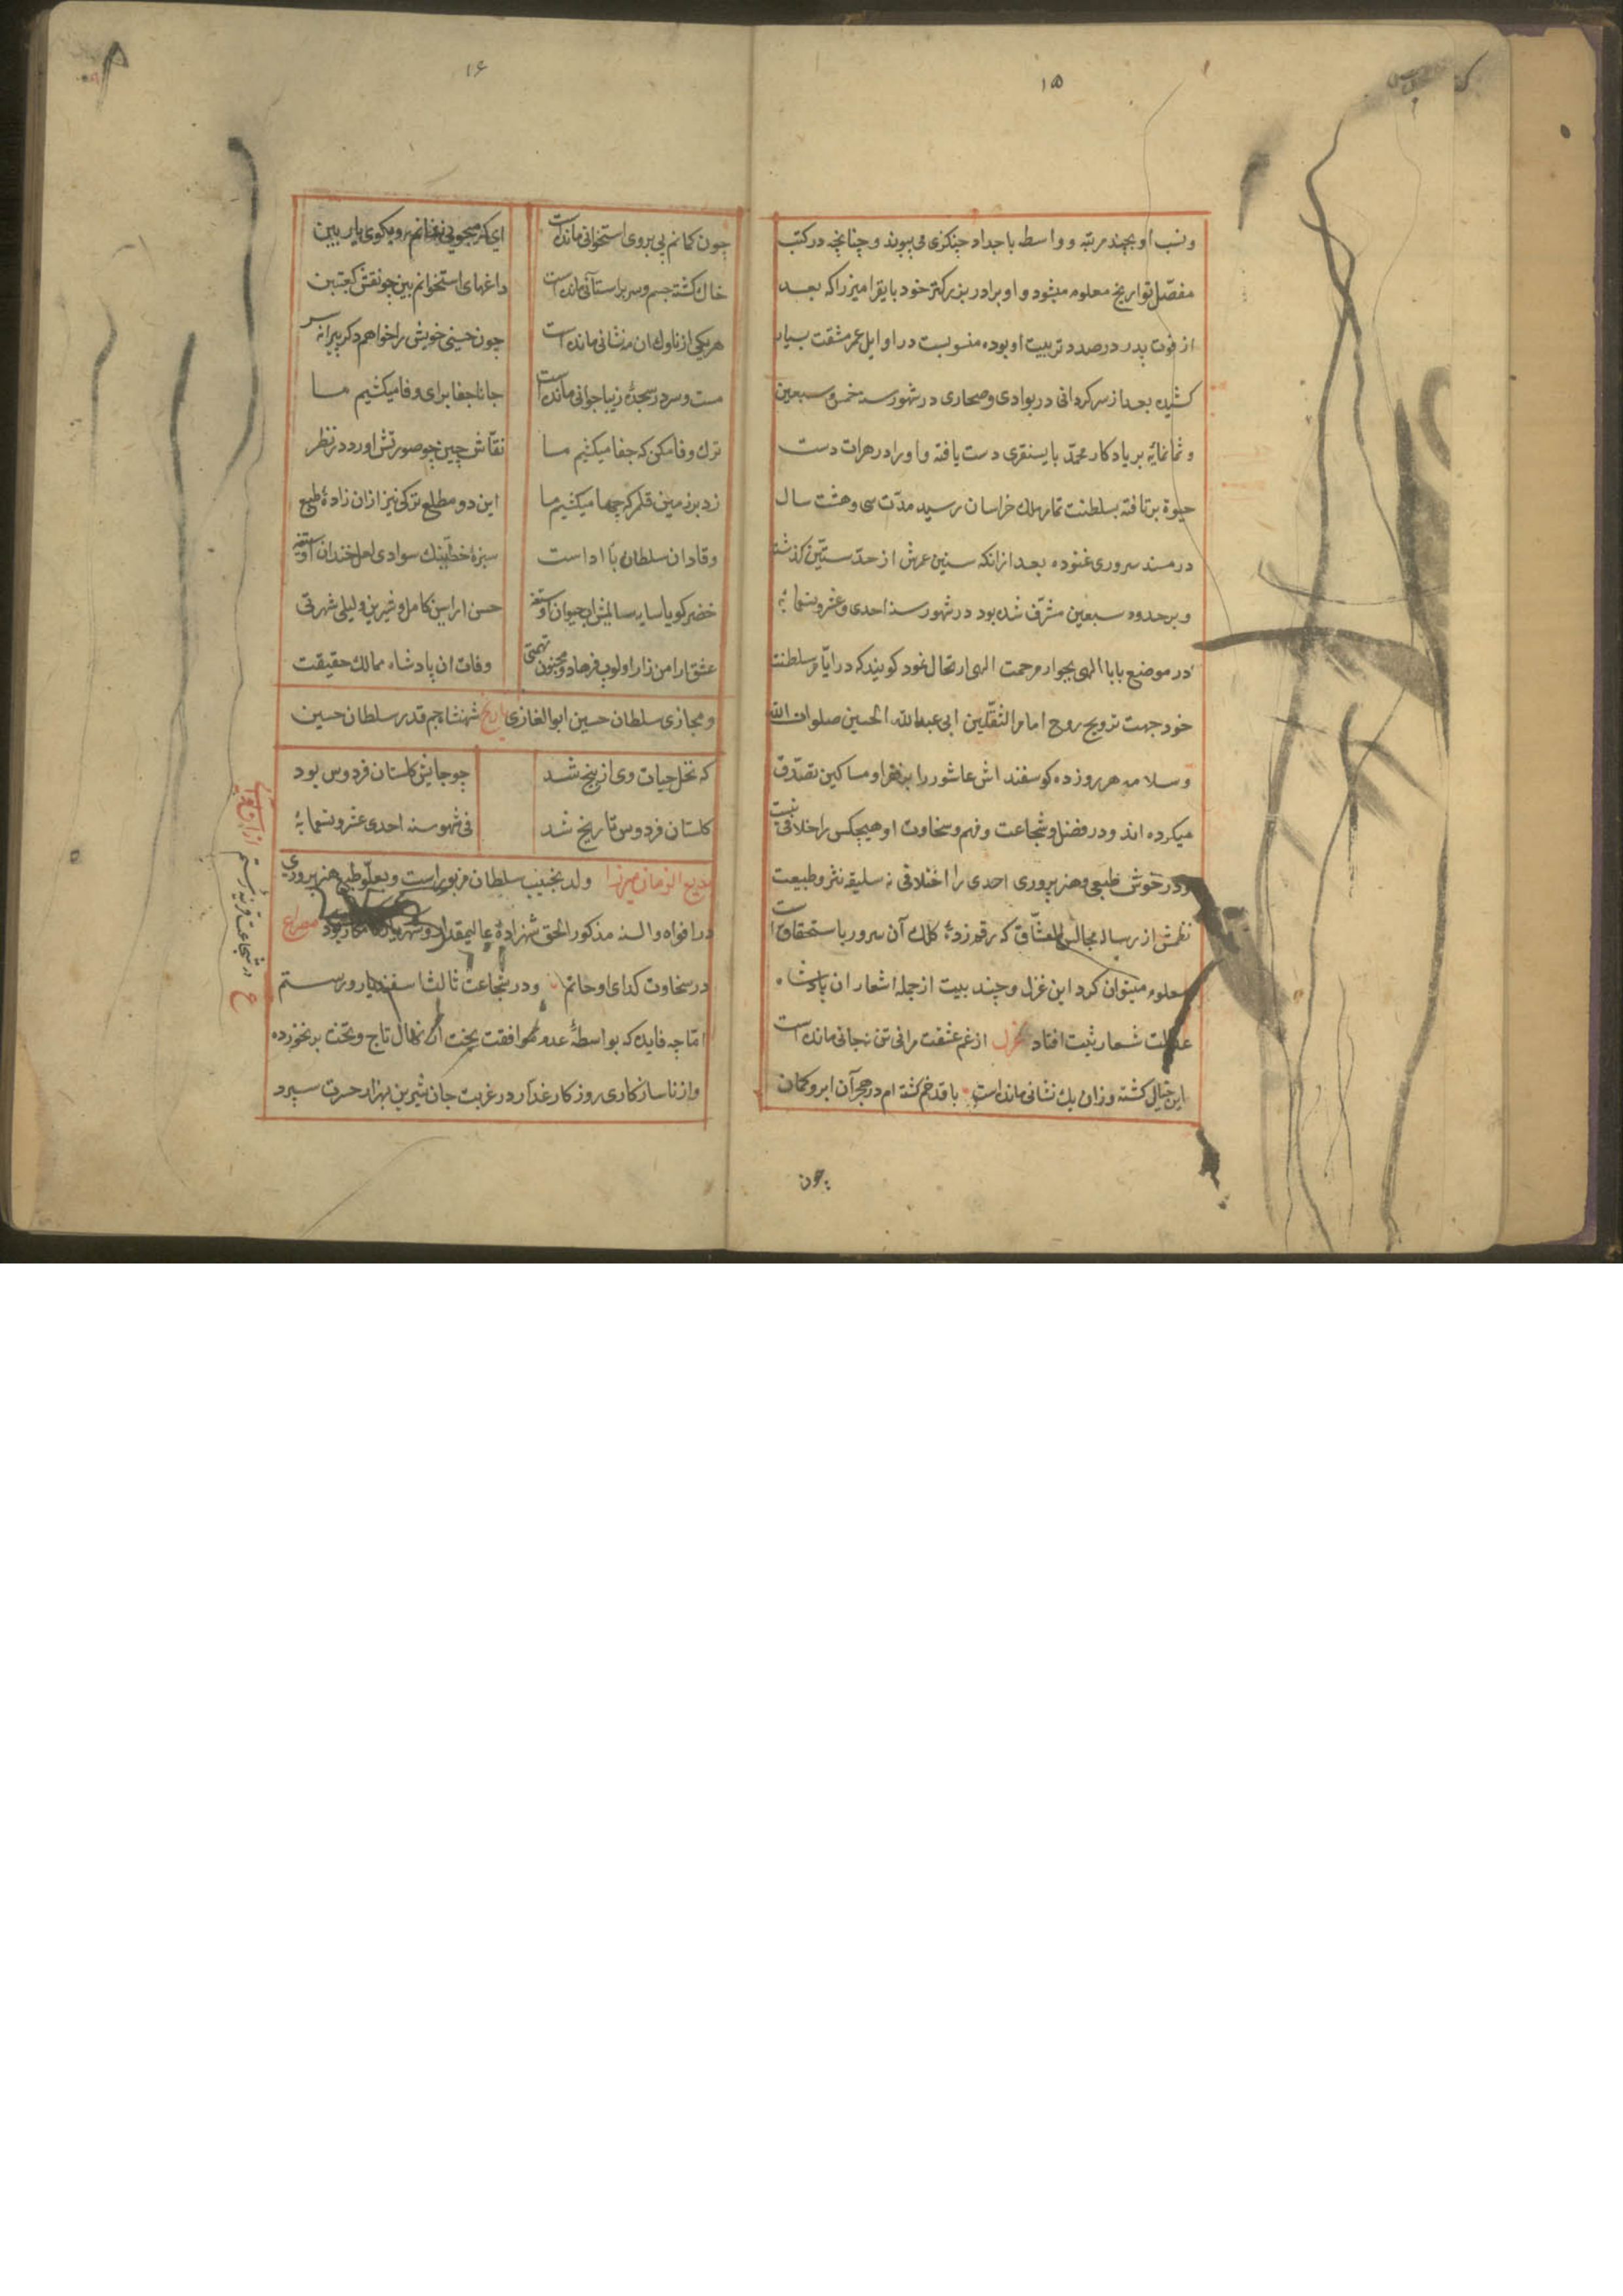 ۱۵
ونسب او بچند مرتبه و واسطه باجداد چنکزی می پیوند و چنانچه در کتب
مفصّل تواریخ معلوم میشود و او برادر بزرکتر خود بایقرا میرزا که بعد
از فوت پدر در صدد تربیت او بوده منسوبست در اوایل عمر مشقت بسیار
کشیده بعد از سرکردانی در بوادی و صحاری در شهور سنه خمس و سبعین
و ثمانمائه بر یادکار محمّد بایسنقری دست یافته و او را در هرات دست
حیوة بر تافته بسلطنت تمام ملک خراسان رسید مدّت سی و هشت سال
در مسند سروری غنوده بعد از انکه سنین عمرش از حدّ ستّین کذشته
و بر حدود سبعین مشرّف شده بود در شهور سنه احدی و عشر و تسعمائه
در موضع بابا الهی بجوار مرحمت الهی ارتحال نمود کویند که در ایّام سلطنت
خود جهت ترویح روح امام الثقلین ابی عبدالله الحسین صلوات الله
و سلامه هر روز ده کوسفند اش عاشور را بر فقرا و مساکین تصدّق
میکرده اند و در فضل و شجاعت و فهم و سخاوت او هیچکس را خلافی نیست
و در خوش طبعی و هنر پروری احدی را اختلافی نه سلیقه نثر و طبیعت
نظمش از رساله مجالس العشّاق که رقم زدهٔ کلک آن سرور با استحقاق است
معلوم میتوان کرد این غزل و چند بیت از جمله اشعار ان پادشاه
عدالت شعار ثبت افتاد غزل از غم عشقت مرا نی تن نه جانی مانده است
این خیال کشته وزان یک نشانی مانده است باقد خم کشته ام در هجر آن ابرو کمان
چون
۱۶
چون کمانم پی بروی استخوانی مانده است ای که میجویی نشانم رو بکوی یار ببین
خاک کشته جسم و سر بر استانی مانده است داغهای استخوانم بین چو نقش کعبتین
هر یکی از ناوک ان مه نشانی مانده است چون حسینی خویش را خواهم دکر پیرانه سر
مست و سر در سجدهٔ زیبا جوانی مانده است جانا جفا برای وفا میکشیم ما
ترک وفا مکن که جفا میکشیم ما نقّاش چین چو صورتش اورد در نظر
زد بر زمین قلم که چها میکشیم ما این دو مطلع ترکی نیز از ان زادهٔ طبع
وقاد ان سلطان با اداست سبزهٔ خطینک سوادی لعل خندان اوستنه
خضر کویا سایه سالمیش اب حیوان اوستنه حسن ارا سین کامل و شیرین و لیلی شهرتی
عشق ارا من زار اولوب فرهاد و مجنون تهمتی وفات ان پادشاه ممالک حقیقت
و مجازی سلطان حسین ابوالغازی تاریخ شهنشاه جم قدر سلطان حسین
که نخل حیات وی از بیخ شد چو جایش کلستان فردوس بود
کلستان فردوس تاریخ شد فی شهور سنه احدی عشر و تسعمائه
بدیع الزمان میرزا ولد نجیب سلطان مزبور است و بعلوّ طبع و هنر پروری
در افواه والسنه مذکور الحق شهزادهٔ عالیمقدار و شهریار کامکار بود مصراع
در سخاوت کدای او حاتم و در شجاعت ثالث اسفندیار و رستم
امّا چه فایده که بواسطهٔ عدم موافقت بخت از نهال تاج و تخت بر نخورده
و از ناسازکاری روزکار غدّار در غربت جان شیرین بهزار حسرت سپرد
در شجاعت قرینهٔ رستم